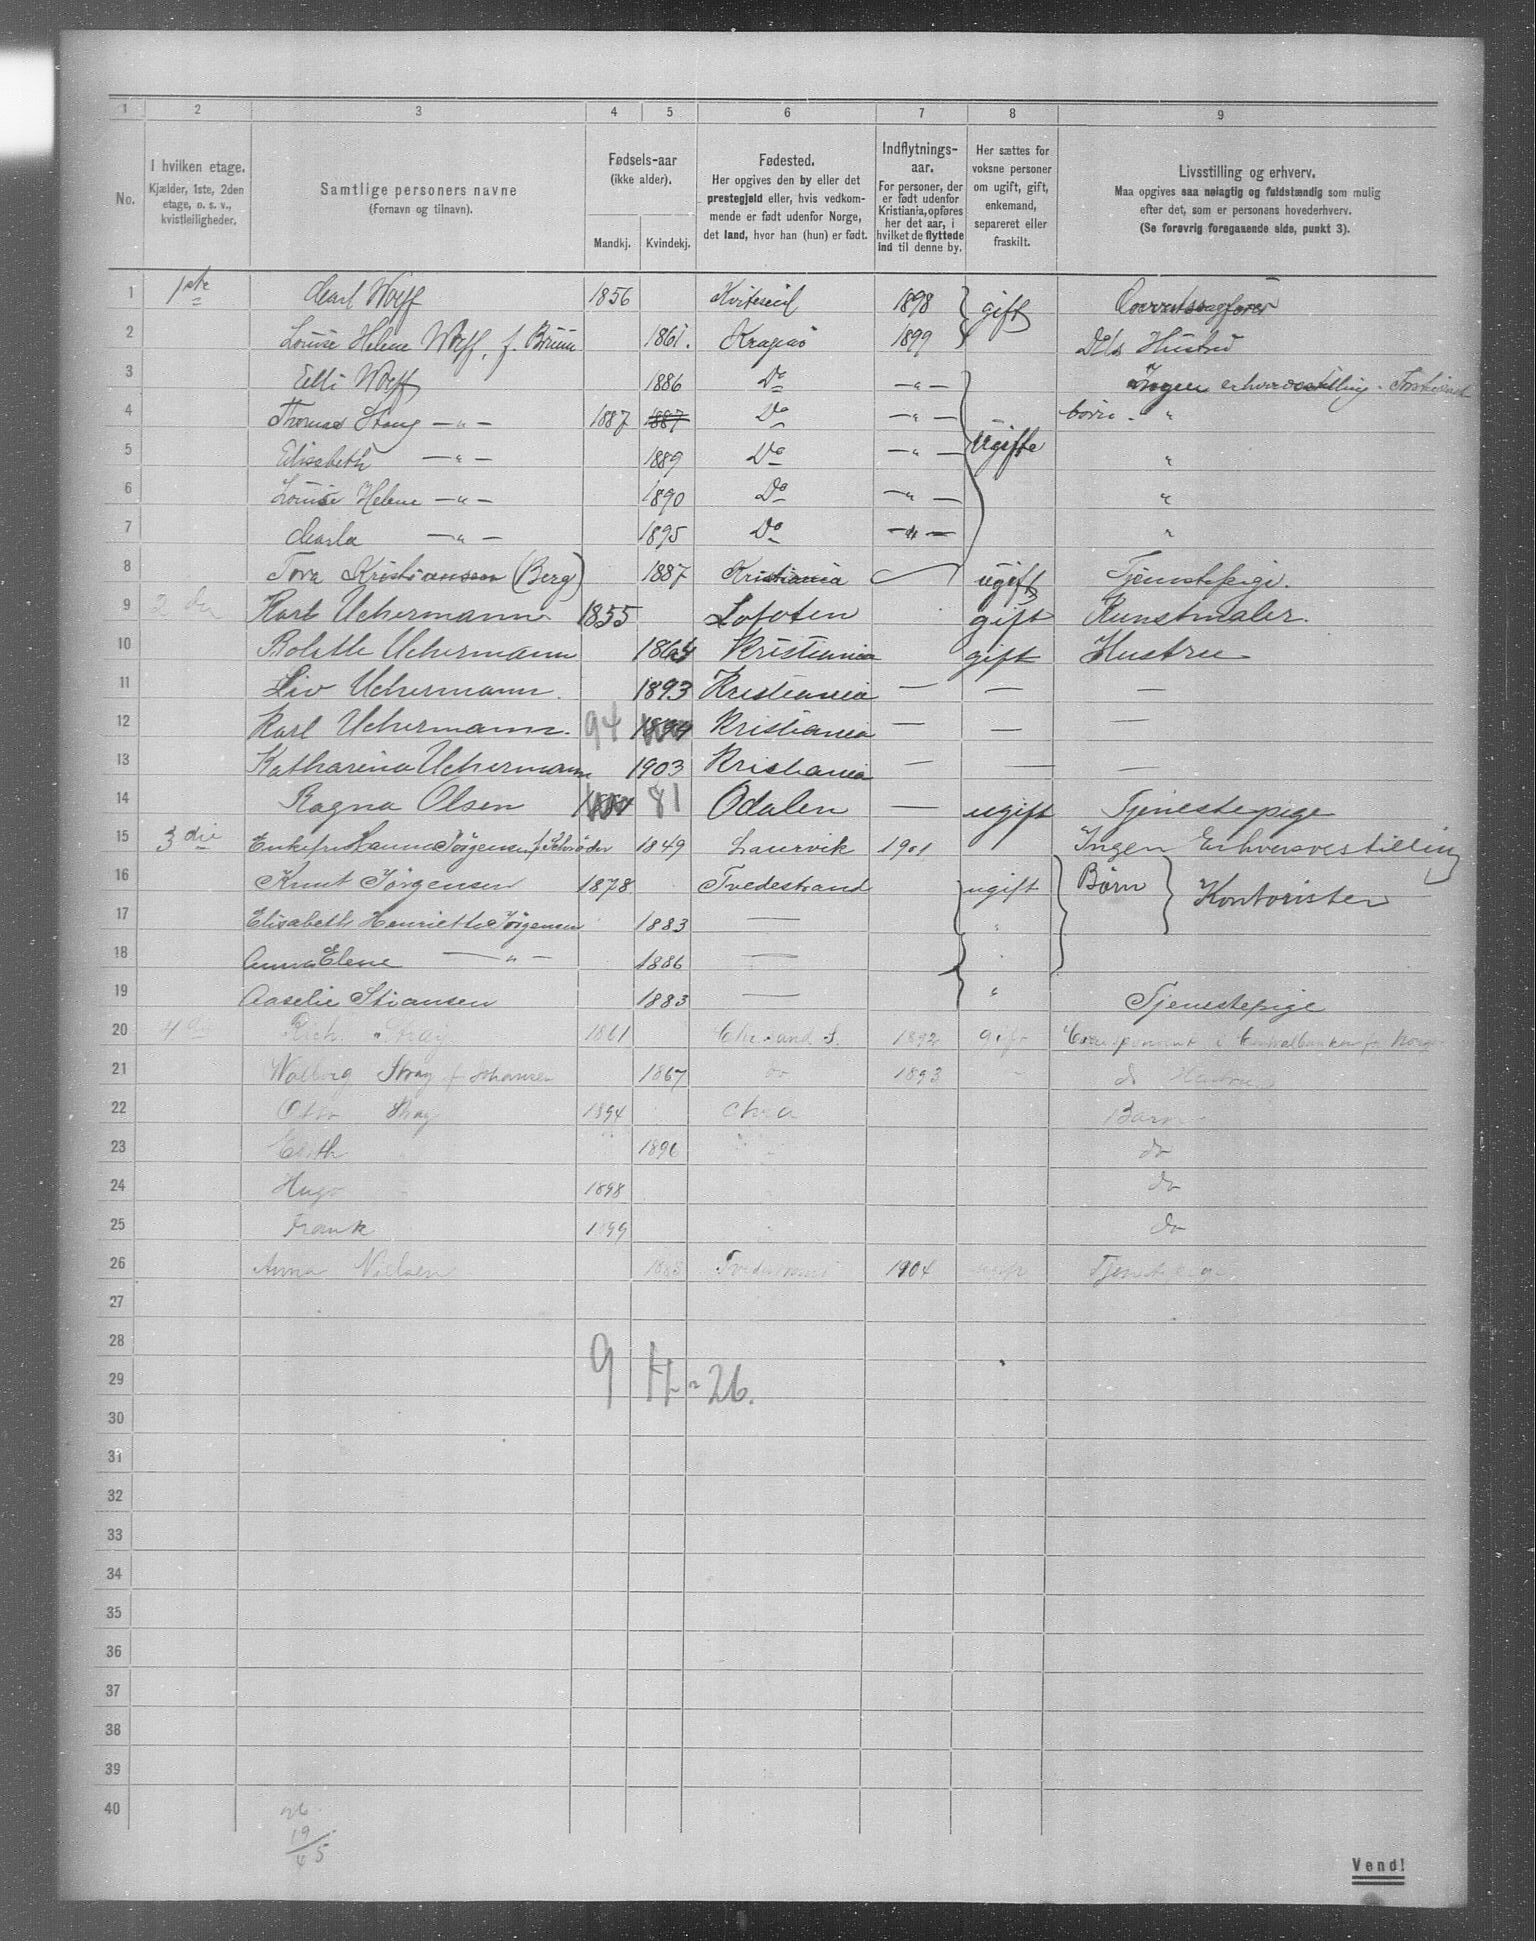 1 2 3 4 5 6 7 8 9
No.
I hvilken etage.
Kjælder, 1ste, 2den
etage, o. s. v.,
kvistleiligheder.
Samtlige personers navne
(Fornavn og tilnavn).
Fødsels-aar
(ikke alder).
Mandkj. Kvindekj.
Fødested.
Her opgives den by eller det
prestegjeld eller, hvis vedkom-
mende er født udenfor Norge,
det land, hvor han (hun) er født.
Indflytnings-
aar.
For personer, der
er født udenfor
Kristiania, opføres
her det aar, i
hvilket de flyttede
ind til denne by.
Her sættes for
voksne personer
om ugift, gift,
enkemand,
separeret eller
fraskilt.
Livsstilling og erhverv.
Maa opgives saa nøiagtig og fuldstændig som mulig
efter det, som er personens hovederhverv.
(Se forøvrig foregaaende side, punkt 3).
1 1ste Carl Wolff 1856 Kviteseid 1898 gift Overretssagfører
2 Louise Helene Wolff, f. Bruun 1861. Kragerø 1899 Dls Hustru
3 Elli Wolff 1886 Do —"— Ingen erhvervsstilling -
4 Thomas Stang —"— 1887 1887 Do —"— børn. "
5 Elisabeth —"— 1889 Do —"— Ugifte "
6 Louise Helene —"— 1890 Do —"— "
7 Carla —"— 1895 Do —"— "
8 Tora Kristiansen (Berg) 1887 Kristiania ugift Tjenestepige.
9 2den Karl Uchermann 1855 Lofoten gift Kunstmaler.
10 Bolette Uchermann 1864 Kristiania gift Hustru
11 Liv Uchermann. 1893 Kristiania — — —
12 Karl Uchermann. 94 1894 Kristiania — — —
13 Katharina Uchermann 1903 Kristiania — — —
14 Ragna Olsen 81 Odalen — ugift Tjenestepige
15 3die Enkefru Hanna Jørgensen f. Schrøder 1849 Laurvik 1901 Ingen Erhvervsstilling
16 Knut Jørgensen 1878 Tvedestrand ugift Børn Kontorister
17 Elisabeth Henriette Jørgensen 1883 — "
18 Anna Elene —"— 1886 — "
19 Aaselie Stiansen 1883 — " Tjenestepige
20 4de Rich. Stray 1861 Chrsand S. 1892 gift Centralbanken for Norge
21 Walborg Stray f. Johansen 1867 do 1893 do Hustru
22 Otto Stray 1894 Chra Barn
23 Edith 1896 do
24 Hugo 1898 do
25 Frank 1899 do
26 Anna Nielsen 1885 Tvedestrand 1904 ugift Tjenestepige
27
28
29
9 17 = 26.
30
31
32
33
34
35
36
37
38
39
40
26
19/45
Vend!